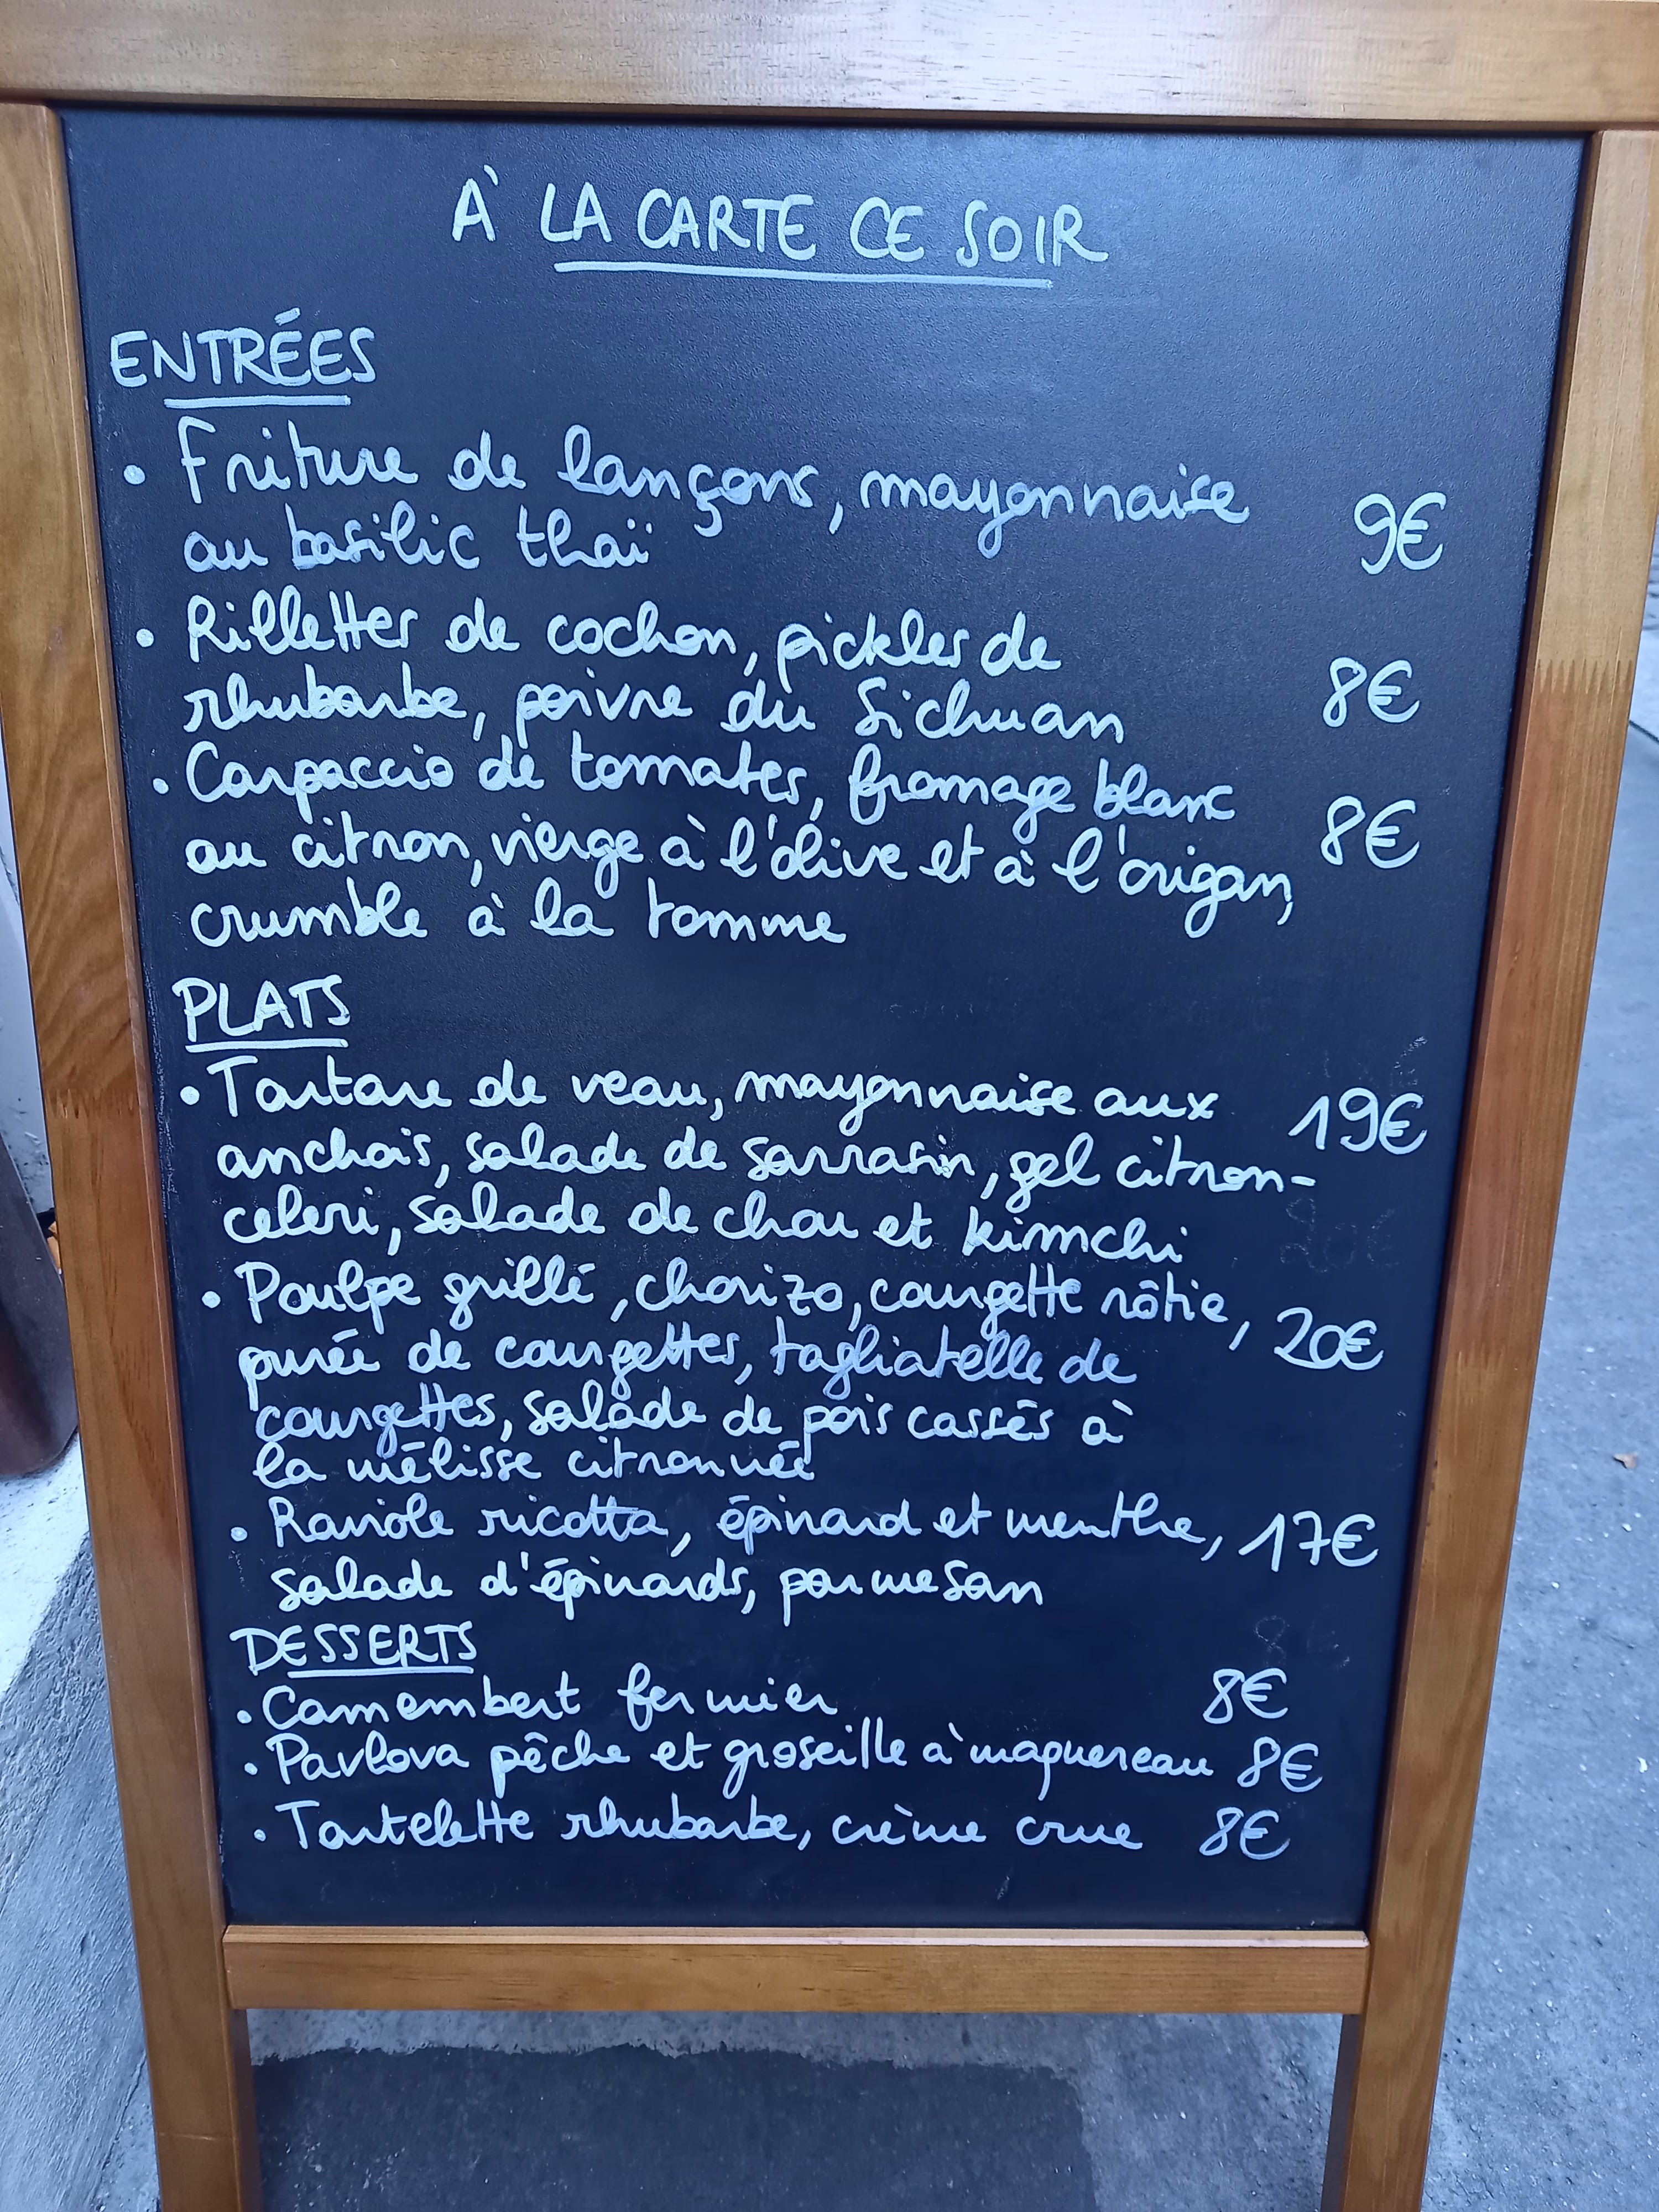 À LA CARTE CE SOIR
ENTRÉES
• Friture de lançons, mayonnaise
au basilic thaï 9€
• Rillettes de cochon, pickles de
rhubarbe, poivre du Sichuan 8€
• Carpaccio de tomates, fromage blanc
au citron, vierge à l'olive et à l'origan, 8€
crumble à la tomme
PLATS
• Tartare de veau, mayonnaise aux 19€
anchois, salade de sarrasin, gel citron-
celeri, salade de chou et kimchi
• Poulpe grillé, chorizo, courgette rôtie, 20€
purée de courgettes, tagliatelle de
courgettes, salade de pois cassés à
la mélisse citronnée
• Raviole ricotta, épinard et menthe, 17€
salade d'épinards, parmesan
DESSERTS
• Camembert fermier 8€
• Pavlova pêche et groseille à maquereau 8€
• Tartelette rhubarbe, crème crue 8€